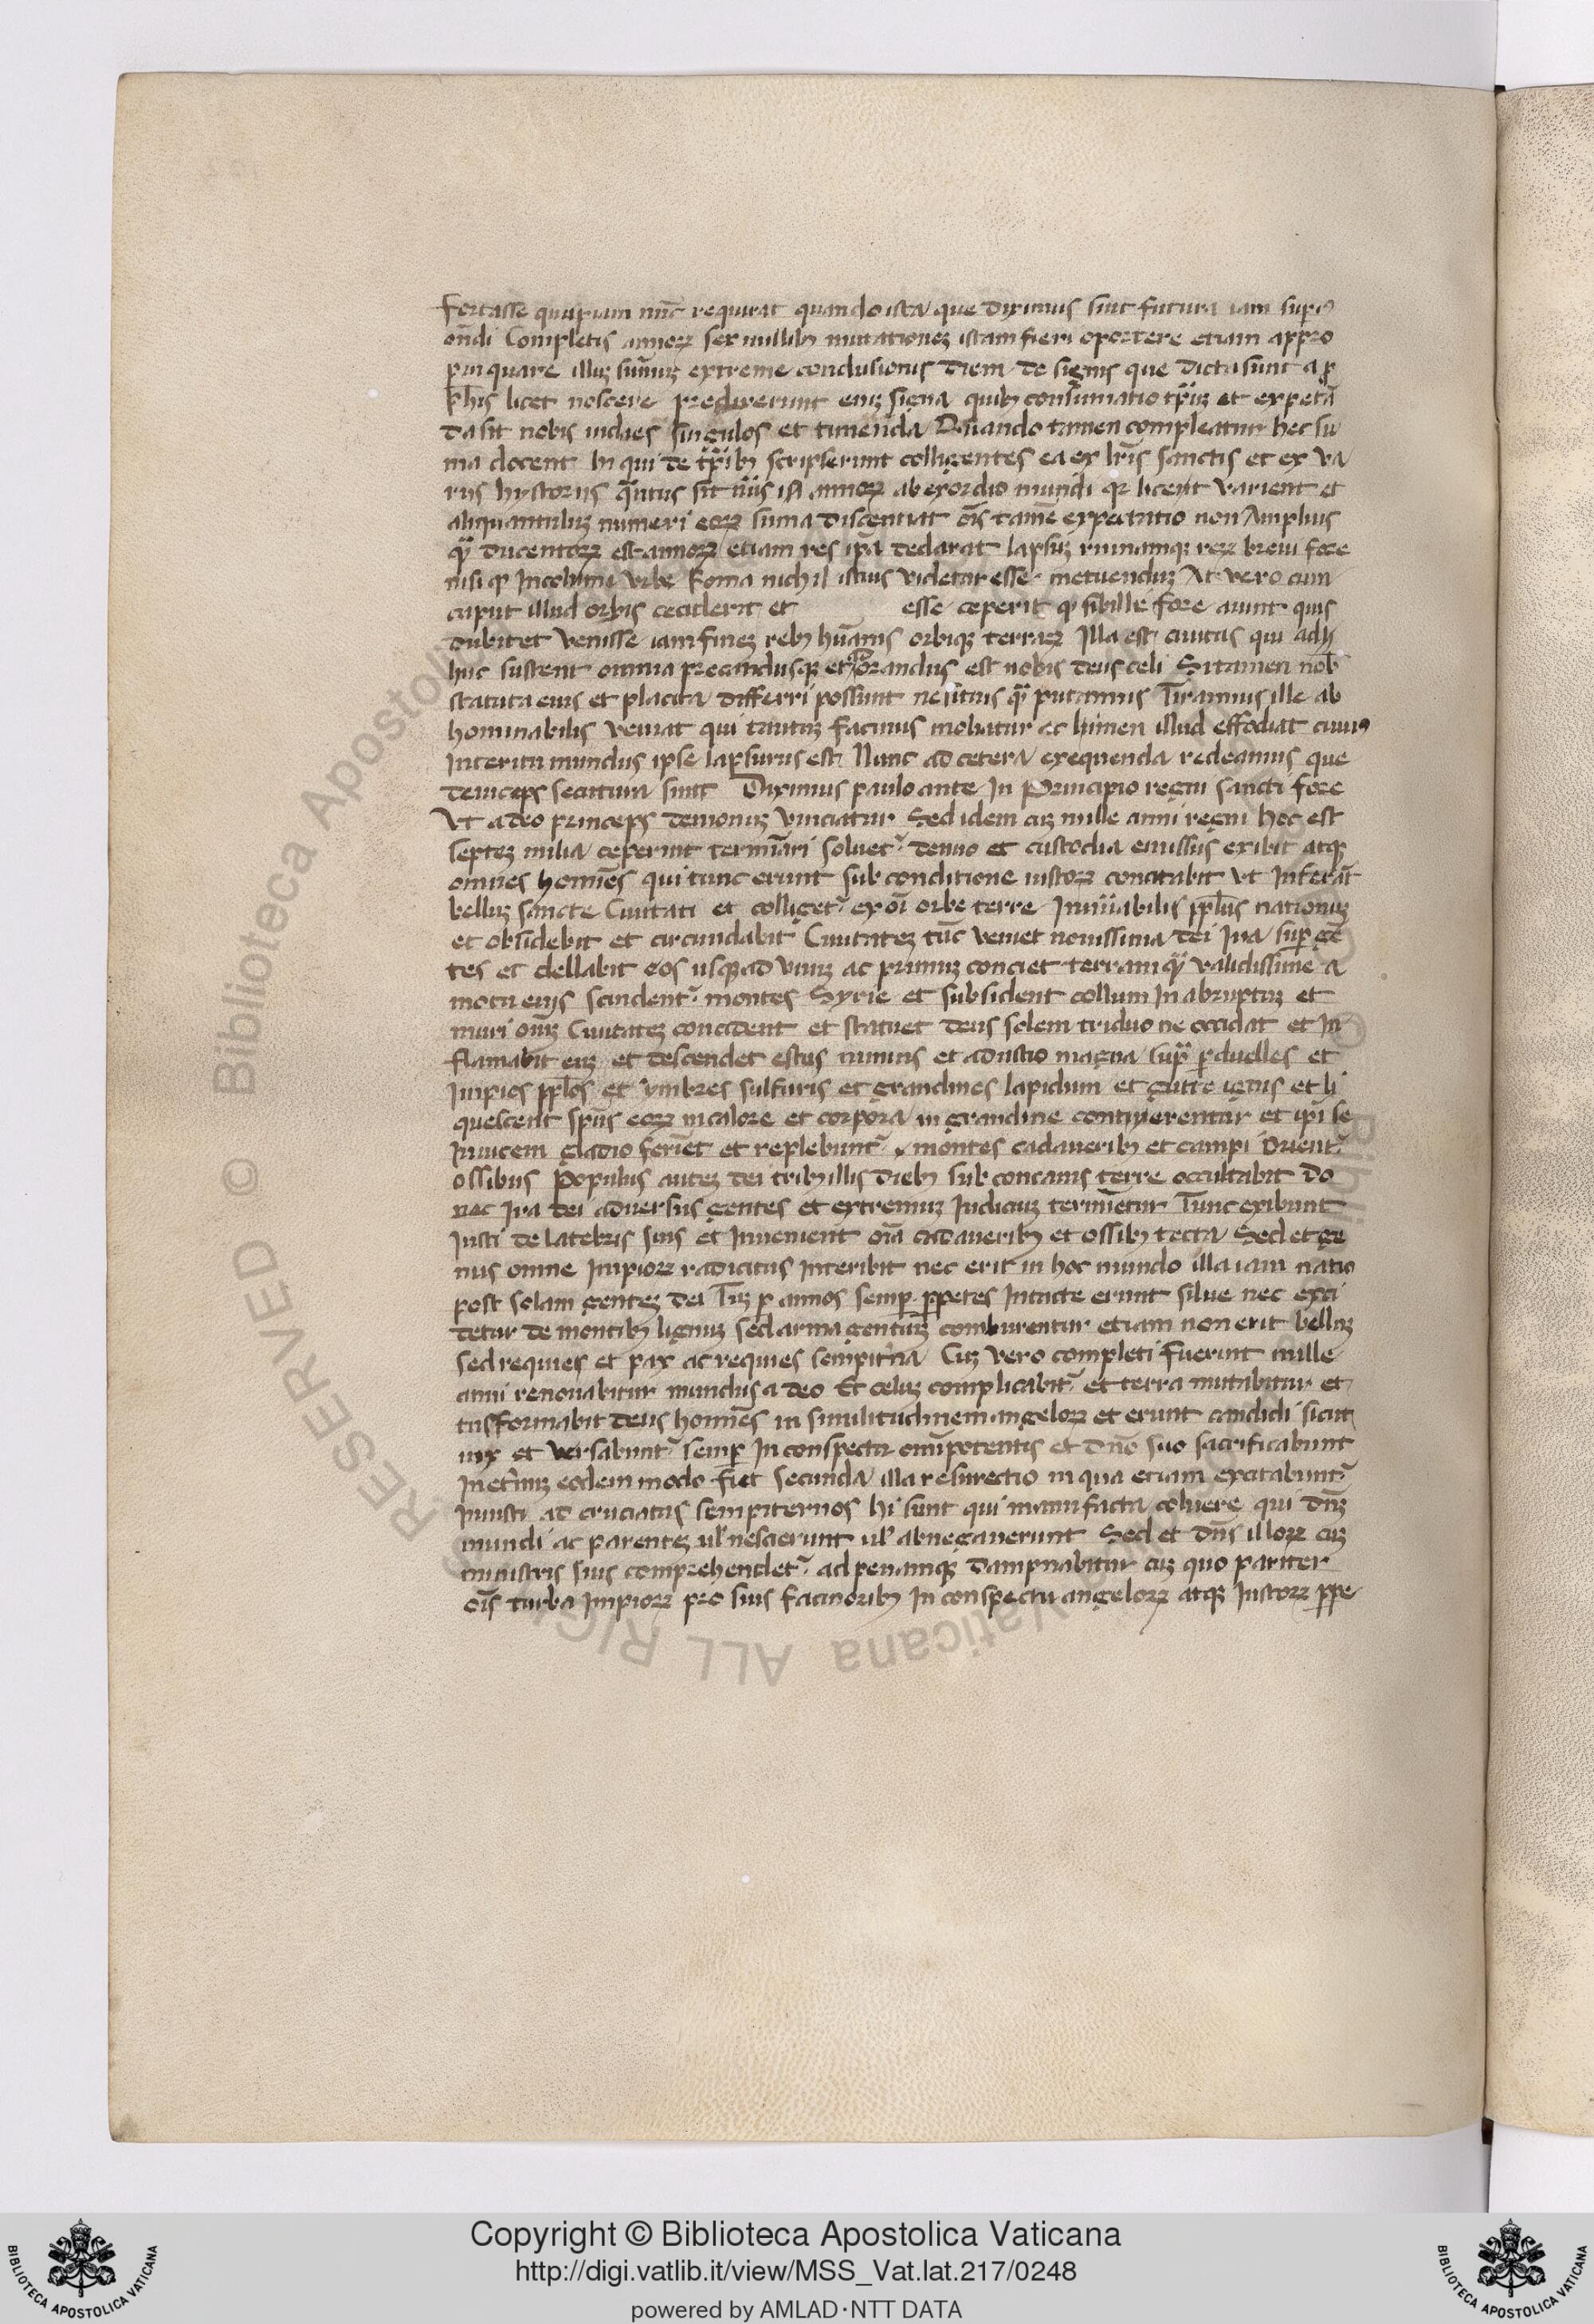 Fortasse quispiam nūc requirat quando ista que diximus sint futura iam supi9
ōndi Completis annorꝝ sex millibꝫ mutationeꝫ istam fieri oportere etiam appro
pinquare illuꝫ sūmuꝫ extreme conclusionis diem de signis que dicta sunt a ꝓ
phīs licet noscere predixerunt eniꝫ signa quibꝫ consūmatio tp̄uꝫ et expetā
da sit nobis indies singulos et timenda Quando tamen compleatur hec su
ma docent hi qui de tp̄ibꝫ scripserunt colligentes ea ex lr̄is sanctis et ex va
riis hystoriis qͣntus sit nūs annorꝝ ab exordio mundi qꝛ licent varient et
aliquantuluꝫ numeri eorꝝ suma discentiat oīs tamē expectatio non Amplius
qͣꝫ ducentorꝝ est annorꝝ etiam res ip̄a declarat lapsuꝫ ruinamqꝫ reꝝ breui fore
nisi qꝫ Incolumi vrbe Roma nichil istius videtur esse metuenduꝫ At vero cum
caput illud orbis ceciderit et esse ceperit qꝫ sibille fore aiunt quis
dubitet venisse iam fineꝫ rebꝫ hūanis orbiqꝫ terraꝝ Illa est ciuitas qui adh
huc sustent omnia precandusqꝫ et orandus est nobis deus celi Si tamen nob
statuta eius et placita differri possunt ne citius qͣꝫ putamus Tirannus ille ab
hominabilis veniat qui tantuꝫ facinus moliatur ac lumen illud effodiat cuius
Interitu mundus ipse lapsurus est Nunc ad cetera exequenda redeamus que
deinceps secutura sunt Diximus paulo ante In Principio regni sancti fore
Vt a deo princeps demonuꝫ vinciatur Sed idem cuꝫ mille anni regni hoc est
septeꝫ milia ceperint termīari soluet᷑ denuo et custodia emissus exibit atqꝫ
omnes homīes qui tunc erunt sub conditione iustorꝝ concitabit Vt Inferāt
belluꝫ sancte Ciuitati et colliget᷑ ex oī orbe terre Innūabilis pp̄lus nationuꝫ
et obsidebit et circundabit Ciuitateꝫ tūc veniet nouissima dei Ira sup gē
tes et dellabit eos usqꝫ ad vnuꝫ ac primuꝫ conciet terram qͣꝫ validissime a
motu eius scindent᷑ montes Syrie et subsident collum In abruptuꝫ et
muri oniūꝫ Ciuitateꝫ concident et statuet deus solem triduo ne occidat et In
flamabit euꝫ et descendet estus nimius et adustio magna supͣ perduelles et
Impios pp̄los et ymbres sulfuris et grandines lapidum et gutte ignis et li
quescent sp̄us eorꝝ in calore et corpora in grandine conterentur et ip̄i se
Inuicem gladio feriēt et replebunt᷑ montes cadaueribꝫ et campi Orient᷑
ossibus Populus auteꝫ dei tribꝫ illis diebꝫ sub concauis terre occultabit do
nec Ira dei aduersus gentes et extremuꝫ Iudiciuꝫ termīetur Tunc exibunt
Iusti de latebris suis et Inuenient oīa cadaueribꝫ et ossibꝫ tecta Sed et ge
nus omne Impiorꝝ radicitus Interibit nec erit in hoc mundo illa iam natio
post solam genteꝫ dei Tūꝫ ꝑ annos semp ꝑpetes Intacte erunt silue nec exci
detur de montibꝫ lignuꝫ sed arma gentiuꝫ comburentur etiam non erit belluꝫ
sed requies et pax ac requies sempit̄na Cuꝫ vero completi fuerint mille
anni renouabitur mundus a deo Et celuꝫ complicabit᷑ et terra mutabitur et
tnsformabit deus homīes in similitudinem angelorꝝ et erunt candidi sicut
nix et versabunt᷑ semp In conspectu omīpotentis et dn̄o suo sacrificabunt
In et̄nuꝫ eodem modo fiet secunda illa resurectio in qua etiam excitabunt᷑
Iniusti ad cruciatus sempiternos hi sunt qui manufacta coluere qui dn̄ꝫ
mundi ac parenteꝫ ul' nescierunt ul' abnegauerunt Sed et dn̄s illorꝝ cuꝫ
ministris suis comprehendet᷑ ad penamqꝫ dampnabitur cuꝫ quo pariter
oīs turba Impiorꝝ pro suis facinoribꝫ In conspectu angelorꝝ atqꝫ Iustorꝝ ꝑpe
© Biblioteca Apostolica Vaticana ALL RIGHTS RESERVED
Copyright © Biblioteca Apostolica Vaticana
http://digi.vatlib.it/view/MSS_Vat.lat.217/0248
powered by AMLAD·NTT DATA
BIBLIOTECA APOSTOLICA VATICANA
BIBLIOTECA APOSTOLICA VATICANA